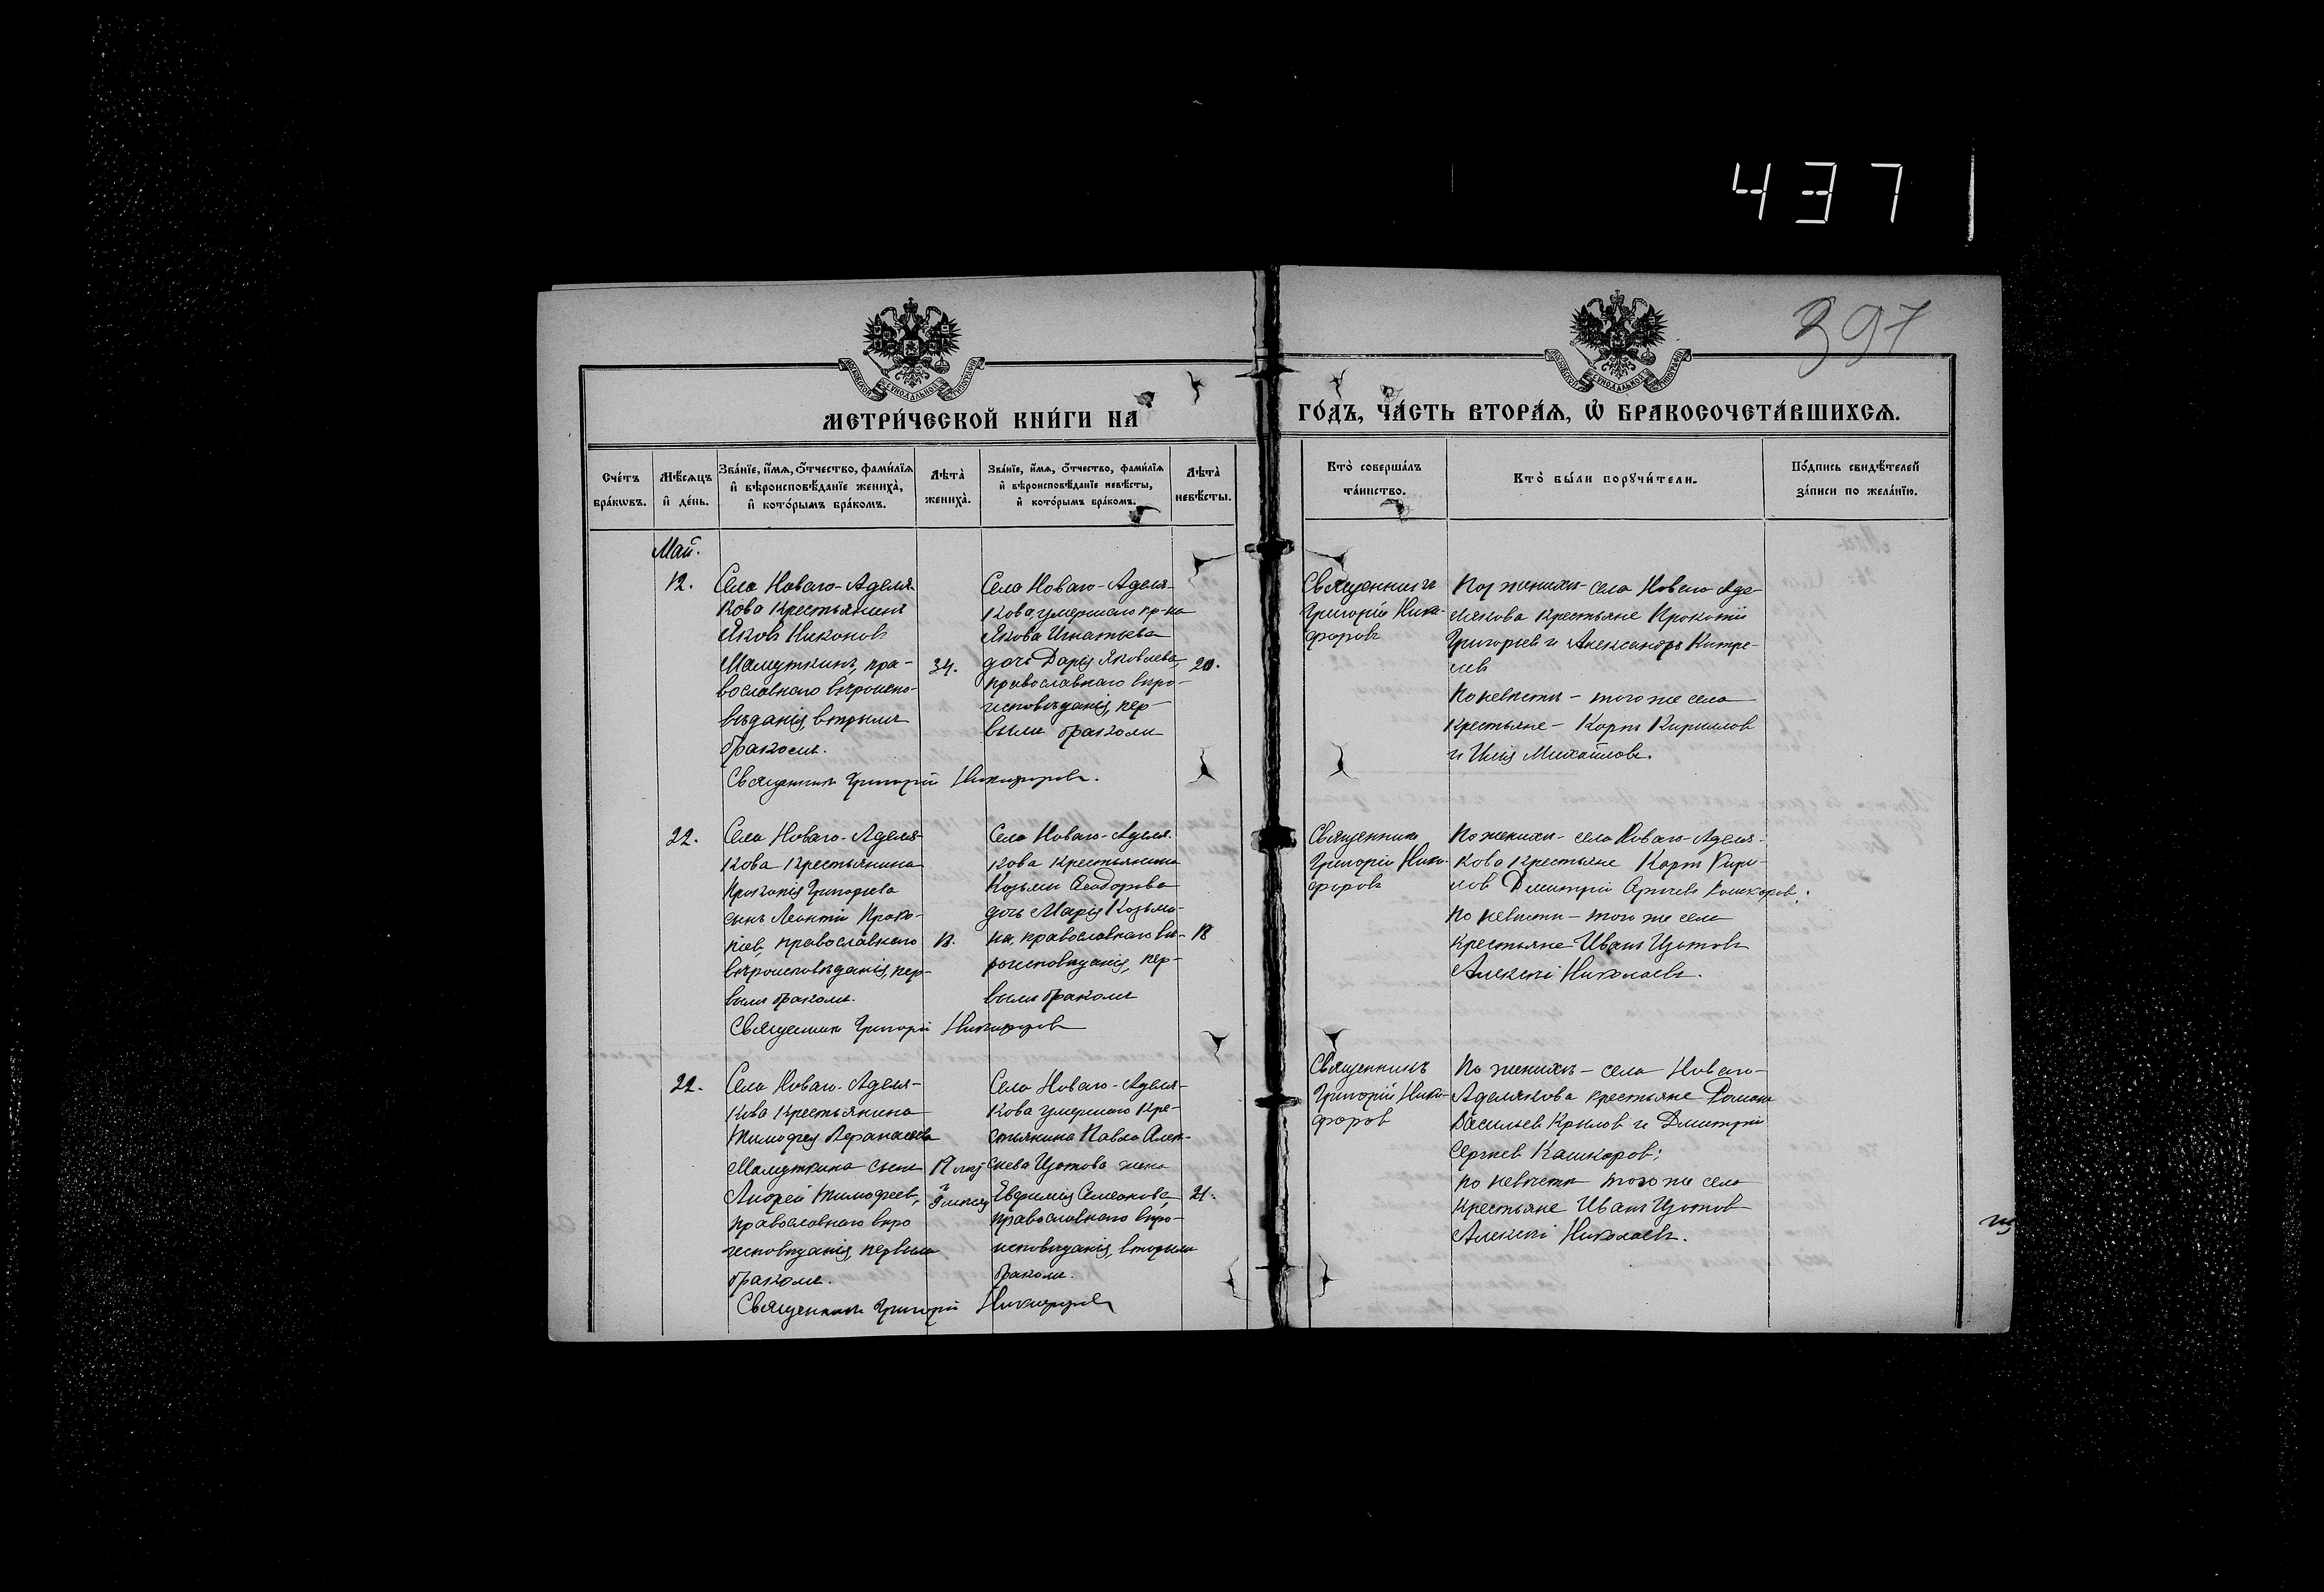 437
397
МЕТРИ́ЧЕСКОЙ КНИ́ГИ НА
ГО́ДЪ, ЧА́СТЬ ВТОРА́Я, Ѡ БРАКОСОЧЕТА́ВШИХСЯ.
Сче́тъ бра́кѡвъ.
Мѣ́сяцъ и де́нь.
Зва́нїе, и́мя, о́тчество, фами́лїя и вѣроисповѣ́данїе жениха̀, и кото́рымъ бра́комъ.
Лѣта̀ жениха̀.
Зва́нїе, и́мя, о́тчество, фами́лїя и вѣроисповѣ́данїе невѣ́сты, и кото́рымъ бра́комъ.
Лѣта̀ невѣ́сты.
Кто̀ соверша́лъ та́инство.
Кто̀ бы́ли поручи́тели.
По́дпись свидѣ́телей за́писи по жела́нїю.
Май.
12.
Села Новаго-Аделя-
кова крестьянинъ
Яковъ Никоновъ
Мамуткинъ, пра-
вославнаго вѣроиспо-
вѣданія, вторымъ
бракомъ.
34.
Села Новаго-Аделя-
кова, умершаго кр-на
Якова Игнатьева
дочь Дарія Яковлева,
православнаго вѣро-
исповѣданія, пер-
вымъ бракомъ
20.
Священникъ
Григорій Ники-
форовъ
По женихѣ - села Новаго Аде-
лякова крестьяне Прокопій
Григорьев и Александръ
По невѣстѣ - того же села
крестьяне - Карпъ Кирилловъ
и Илія Михайловъ.
Священникъ Григорій Никифоровъ.
22.
Села Новаго-Аделя-
кова крестьянина
Прокопія Григорьева
сынъ Леонтій Проко-
піевъ, православнаго
вѣроисповѣданія, пер-
вымъ бракомъ.
18.
Села Новаго-Аделя-
кова крестьянина
Козьмы Ѳеодорова
дочь Марія Козьми-
на, православнаго вѣ-
роисповѣданія, пер-
вымъ бракомъ
18
Священникъ
Григорій Ники-
форовъ
По женихѣ - села Новаго-Аделя-
кова крестьяне Карпъ Кири-
ловъ Дмитрій Сергѣевъ Кашкаровъ;
по невѣстѣ - того же села
крестьяне Иванъ Изотовъ
Алексѣй Николаевъ.
Священникъ Григорій Никифоровъ
22.
Села Новаго-Аделя-
кова крестьянина
Тимофея Аѳанасьева
Мамуткина сынъ
Андрей Тимофеевъ,
православнаго вѣро
исповѣданія, первымъ
бракомъ.
Села Новаго-Аделя-
кова умершаго кре-
стьянина Павла Алек-
сѣева Изотова жена
Евфимія Симеонова,
православнаго вѣро-
исповѣданія, вторымъ
бракомъ.
21.
Священникъ
Григорій Ники-
форовъ
По женихѣ - села Новаго-
Аделякова крестьяне Романъ
Васильев Крыловъ и Дмитрій
Сергѣев Кашкаровъ;
по невѣстѣ того же села
крестьяне Иванъ Изотовъ
Алексѣй Николаевъ.
Священникъ Григорій Никифоровъ